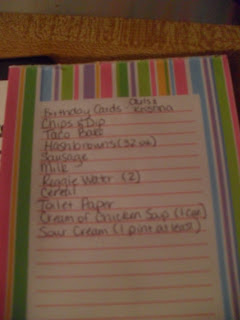 Birthday Cards Chris &
Krishna
Chips & Dip
Taco Bake
Hashbrowns (32 oz)
Sausage
Milk
Reggie Water (2)
Cereal
Toilet Paper
Cream of Chicken Soup (1 can)
Sour Cream (1 pint at least)